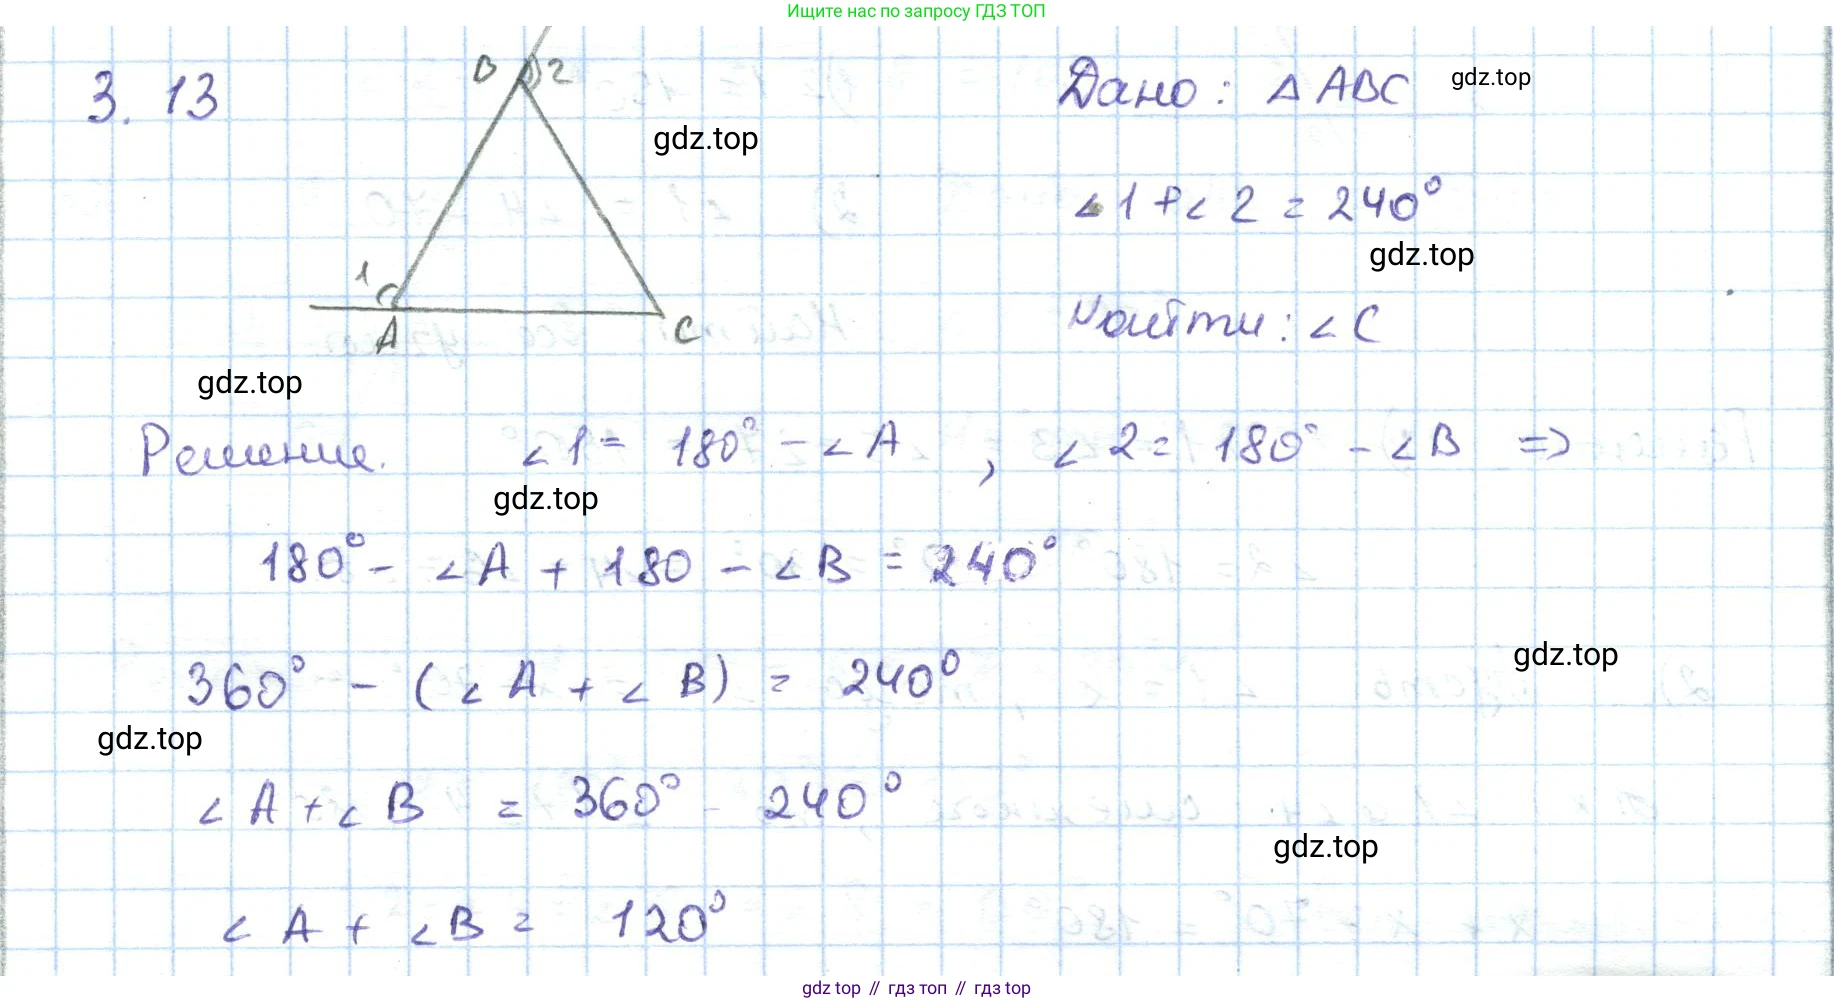 Ищите нас по запросу ГДЗ ТОП
3. 13
B 2
Дано: △ ABC
gdz.top
gdz.top
∠1 + ∠2 = 240°
gdz.top
1
A
C
Найти: ∠C
gdz.top
Решение. ∠1 = 180° - ∠A , ∠2 = 180° - ∠B =>
gdz.top
180° - ∠A + 180 - ∠B = 240°
gdz.top
360° - (∠A + ∠B) = 240°
gdz.top
∠A + ∠B = 360° - 240°
gdz.top
∠A + ∠B = 120°
gdz top // гдз топ // гдз top